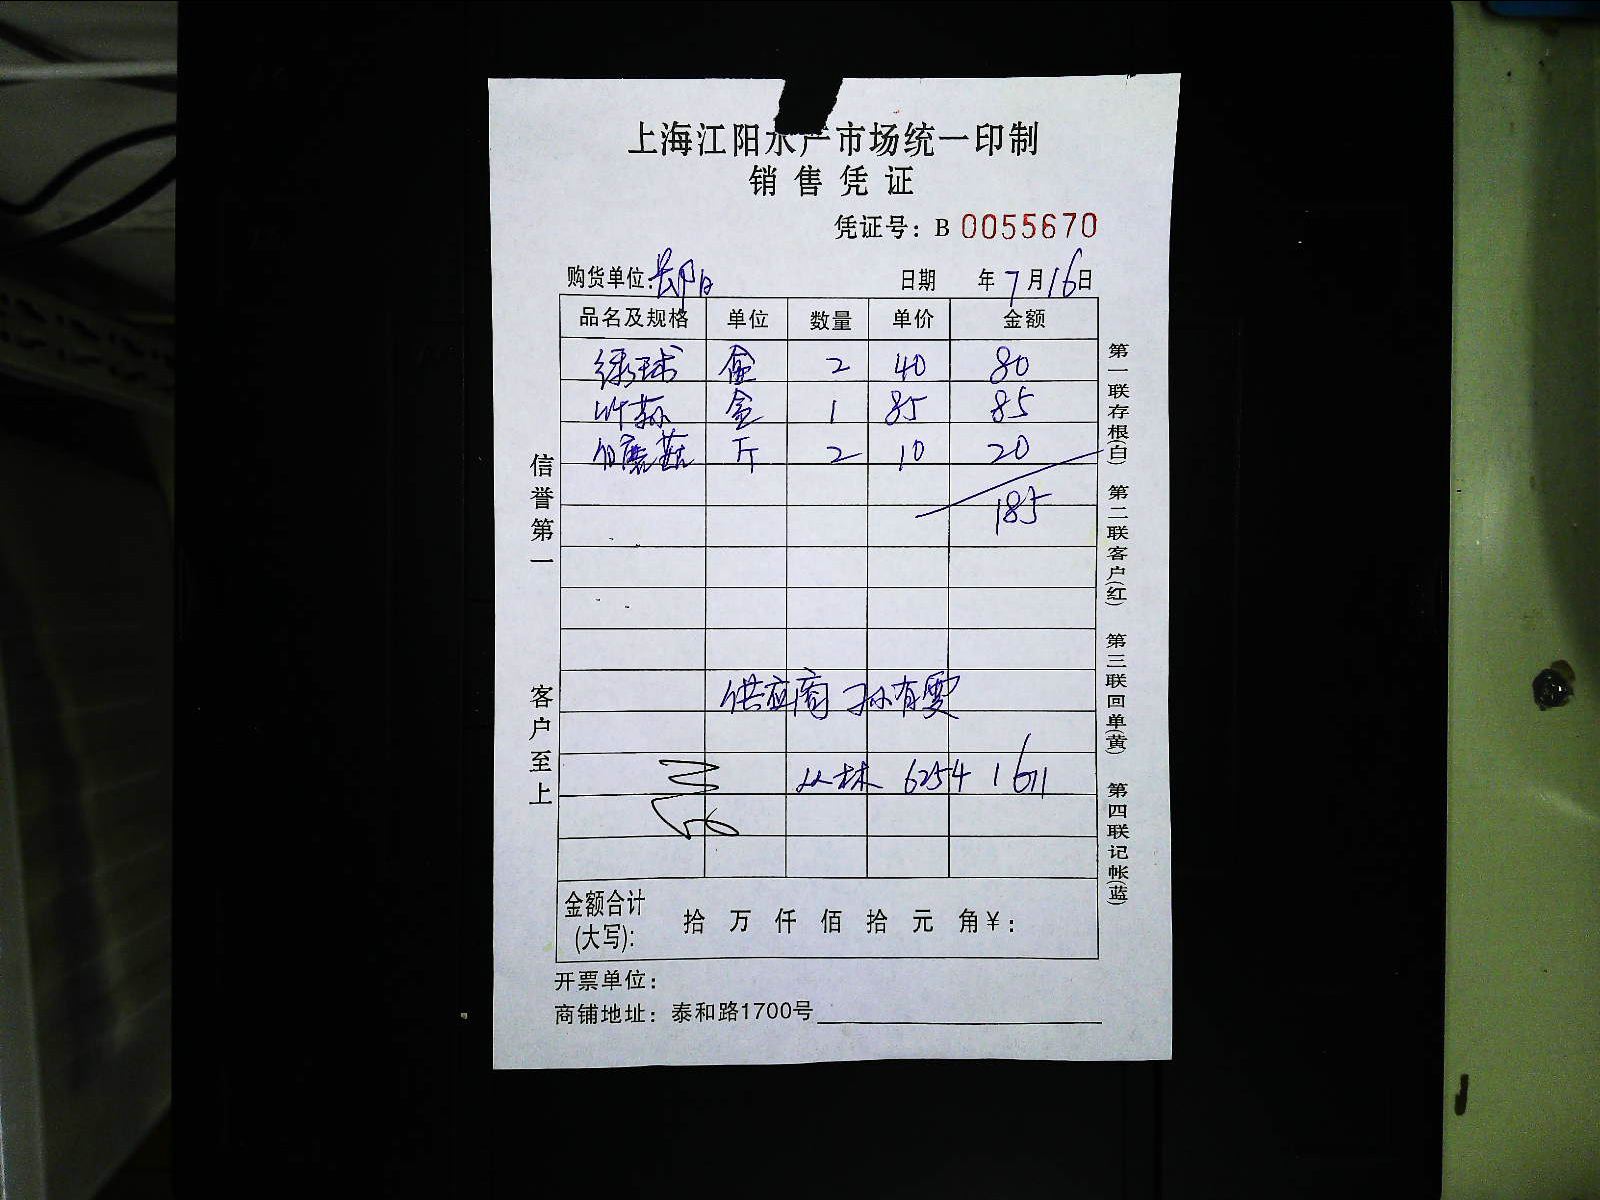 上海江阳水产市场统一印制
销售凭证
凭证号：B 0055670
购货单位: 日期 年7月16日
品名及规格 单位 数量 单价 金额
绿球 盒 2 40 80
竹荪 盒 1 85 85
白蘑菇 斤 2 10 20
185
供应商 孙有雯
丛林 6254 1611
金额合计(大写): 拾 万 仟 佰 拾 元 角￥:
开票单位：
商铺地址：泰和路1700号
信誉第一
客户至上
第一联存根(白) 第二联客户(红) 第三联回单(黄) 第四联记帐(蓝)